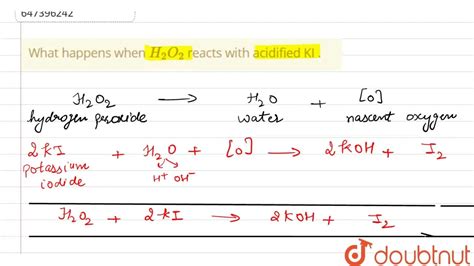 647396242
What happens when H₂O₂ reacts with acidified KI .
H₂O₂ ⟶ H₂O + [O]
hydrogen peroxide water nascent oxygen
2KI + H₂O + [O] ⟶ 2KOH + I₂
potassium iodide H⁺ OH⁻
H₂O₂ + 2KI ⟶ 2KOH + I₂
doubtnut